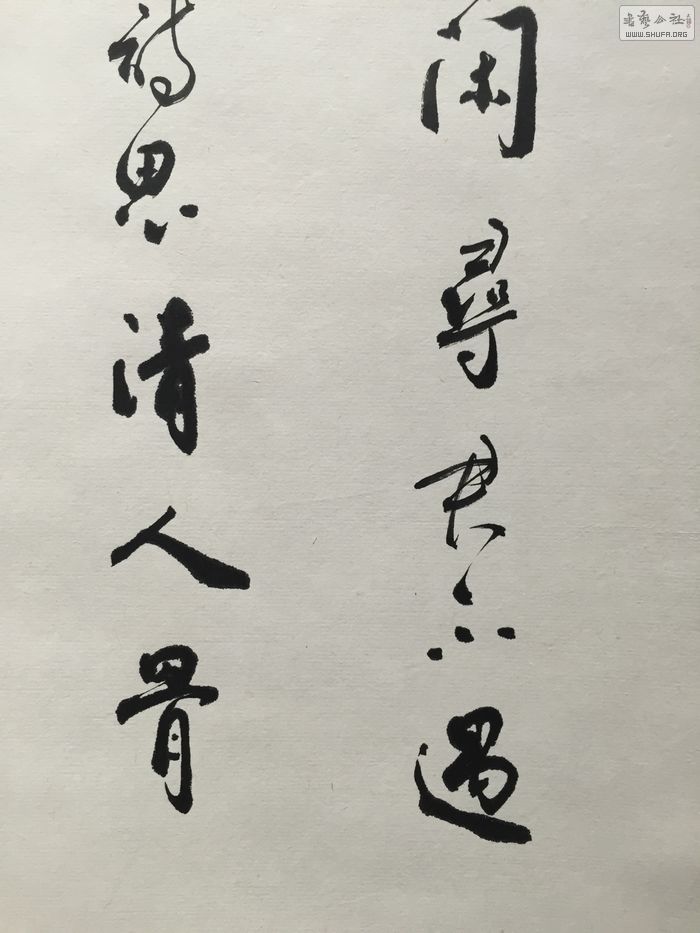 閑尋君不遇
詩思清人骨
書藝公社
WWW.SHUFA.ORG